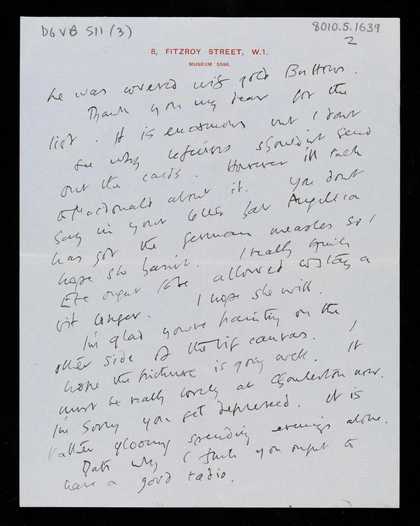 DGVB S11 (3)
8010.5.1639
2
8, FITZROY STREET, W.1.
MUSEUM 5566.
he was covered with gold Buttons.
Thank you my dear for the
list. It is enormous but I dont
see why Lefevres shouldnt send
out the cards. However ill talk
to Macdonald about it. You dont
say in your letter that Angelica
has got the german measles so I
hope she hasnt. I really think
Eve ought to be allowed to stay a
bit longer. I hope she will.
I'm glad you're painting on the
other side of the big canvas. I
hope the picture is going well. It
must be really lovely at Charleston now.
I'm sorry you get depressed. It is
rather gloomy spending evenings alone.
Thats why I think you ought to
have a good radio.